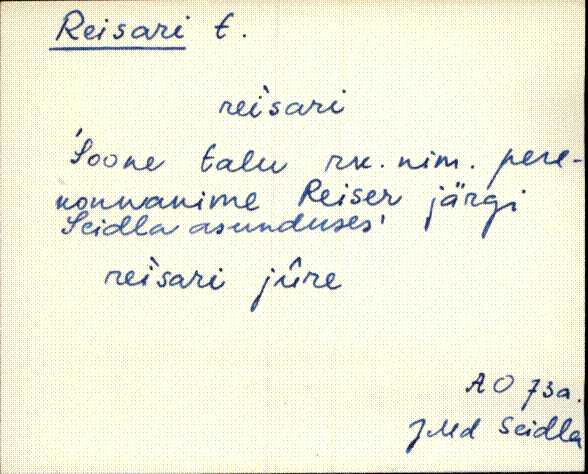 Reisari t.
rei`sari
'Soone talu rk. nim. pere-
konnanime Reiser järgi
Seidla asunduses'
rei`sari jûre
AO 73a.
JMd Seidla